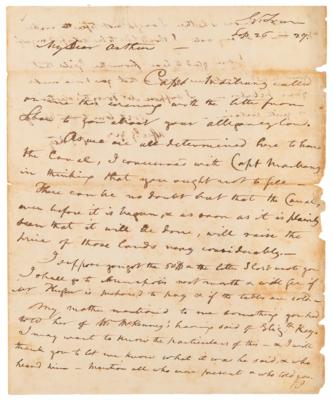 Geo Town
Sep. 26. — 27.
My Dear Arthur —
Capt Marbury called
on me this evening with the letter from
to you about your alleganey lands
As we are all determined here to have
the Canal, I concurred with Capt Marbury
in thinking that you ought not to sell —
There can be no doubt but that the Canal,
even before it is begun, & as soon as it is plainly
seen that it will be done, will raise the
price of those lands very considerably —
I suppose you got the 50$ & the letter I last wrote you
I shall go to Annapolis next month
Mr is prepared to pay & if the are sold —
My mother mentioned to me something you had
told her of Mr McKenny's having said of Eliz'th Key.
I may want to know the particulars of this — & I will
thank you to let me know what it was he said, & who
heard him — Mention all who were present & who told you